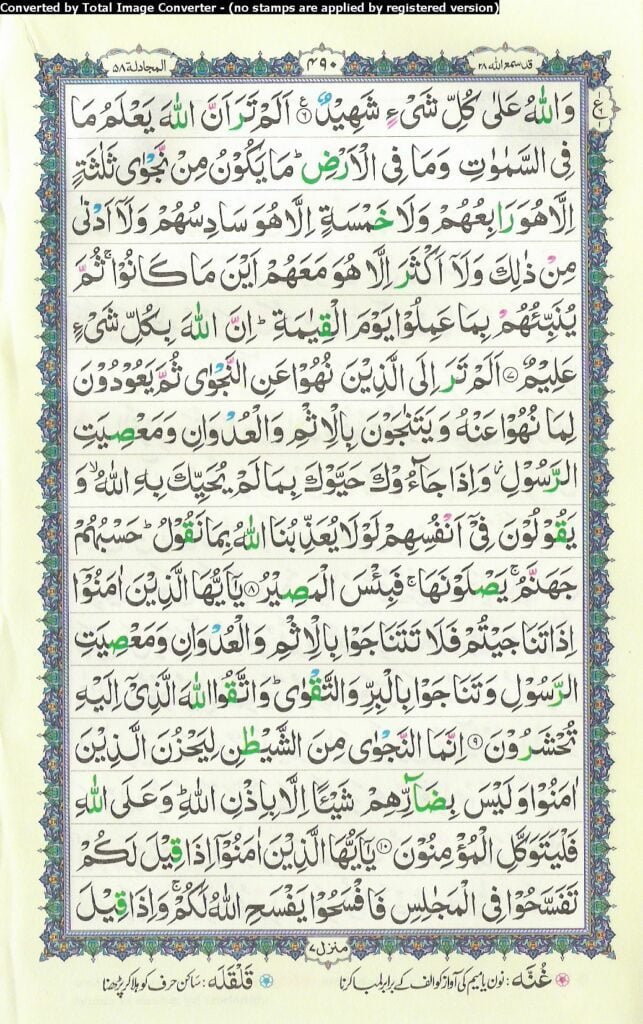 Converted by Total Image Converter - (no stamps are applied by registered version)
قد سمع الله ٢٨
٤٩٠
المجادلة ٥٨
وَاللّٰهُ عَلٰى كُلِّ شَىْءٍ شَهِيْدٌ ۝٦ اَلَمْ تَرَ اَنَّ اللّٰهَ يَعْلَمُ مَا
فِى السَّمٰوٰتِ وَمَا فِى الْاَرْضِ ؕ مَا يَكُوْنُ مِنْ نَّجْوٰى ثَلٰثَةٍ
اِلَّا هُوَ رَابِعُهُمْ وَلَا خَمْسَةٍ اِلَّا هُوَ سَادِسُهُمْ وَلَاۤ اَدْنٰى
مِنْ ذٰلِكَ وَلَاۤ اَكْثَرَ اِلَّا هُوَ مَعَهُمْ اَيْنَ مَا كَانُوْا ۚ ثُمَّ
يُنَبِّئُهُمْ بِمَا عَمِلُوْا يَوْمَ الْقِيٰمَةِ ؕ اِنَّ اللّٰهَ بِكُلِّ شَىْءٍ
عَلِيْمٌ ۝٧ اَلَمْ تَرَ اِلَى الَّذِيْنَ نُهُوْا عَنِ النَّجْوٰى ثُمَّ يَعُوْدُوْنَ
لِمَا نُهُوْا عَنْهُ وَيَتَنٰجَوْنَ بِالْاِثْمِ وَالْعُدْوَانِ وَمَعْصِيَتِ
الرَّسُوْلِ ؗ وَاِذَا جَآءُوْكَ حَيَّوْكَ بِمَا لَمْ يُحَيِّكَ بِهِ اللّٰهُ ۙ وَ
يَقُوْلُوْنَ فِىْۤ اَنْفُسِهِمْ لَوْلَا يُعَذِّبُنَا اللّٰهُ بِمَا نَقُوْلُ ؕ حَسْبُهُمْ
جَهَنَّمُ ۚ يَصْلَوْنَهَا ۚ فَبِئْسَ الْمَصِيْرُ ۝٨ يٰۤاَيُّهَا الَّذِيْنَ اٰمَنُوْۤا
اِذَا تَنَاجَيْتُمْ فَلَا تَتَنَاجَوْا بِالْاِثْمِ وَالْعُدْوَانِ وَمَعْصِيَتِ
الرَّسُوْلِ وَتَنَاجَوْا بِالْبِرِّ وَالتَّقْوٰى ؕ وَاتَّقُوا اللّٰهَ الَّذِىْۤ اِلَيْهِ
تُحْشَرُوْنَ ۝٩ اِنَّمَا النَّجْوٰى مِنَ الشَّيْطٰنِ لِيَحْزُنَ الَّذِيْنَ
اٰمَنُوْا وَلَيْسَ بِضَآرِّهِمْ شَيْـًٔا اِلَّا بِاِذْنِ اللّٰهِ ؕ وَعَلَى اللّٰهِ
فَلْيَتَوَكَّلِ الْمُؤْمِنُوْنَ ۝١٠ يٰۤاَيُّهَا الَّذِيْنَ اٰمَنُوْۤا اِذَا قِيْلَ لَكُمْ
تَفَسَّحُوْا فِى الْمَجٰلِسِ فَافْسَحُوْا يَفْسَحِ اللّٰهُ لَكُمْ ۚ وَاِذَا قِيْلَ
منزل ٧
غُنَّه: نون یا میم کی آواز کو الف کے برابر لمبا کرنا
قَلْقَلَه: ساکن حرف کو ہلا کر پڑھنا